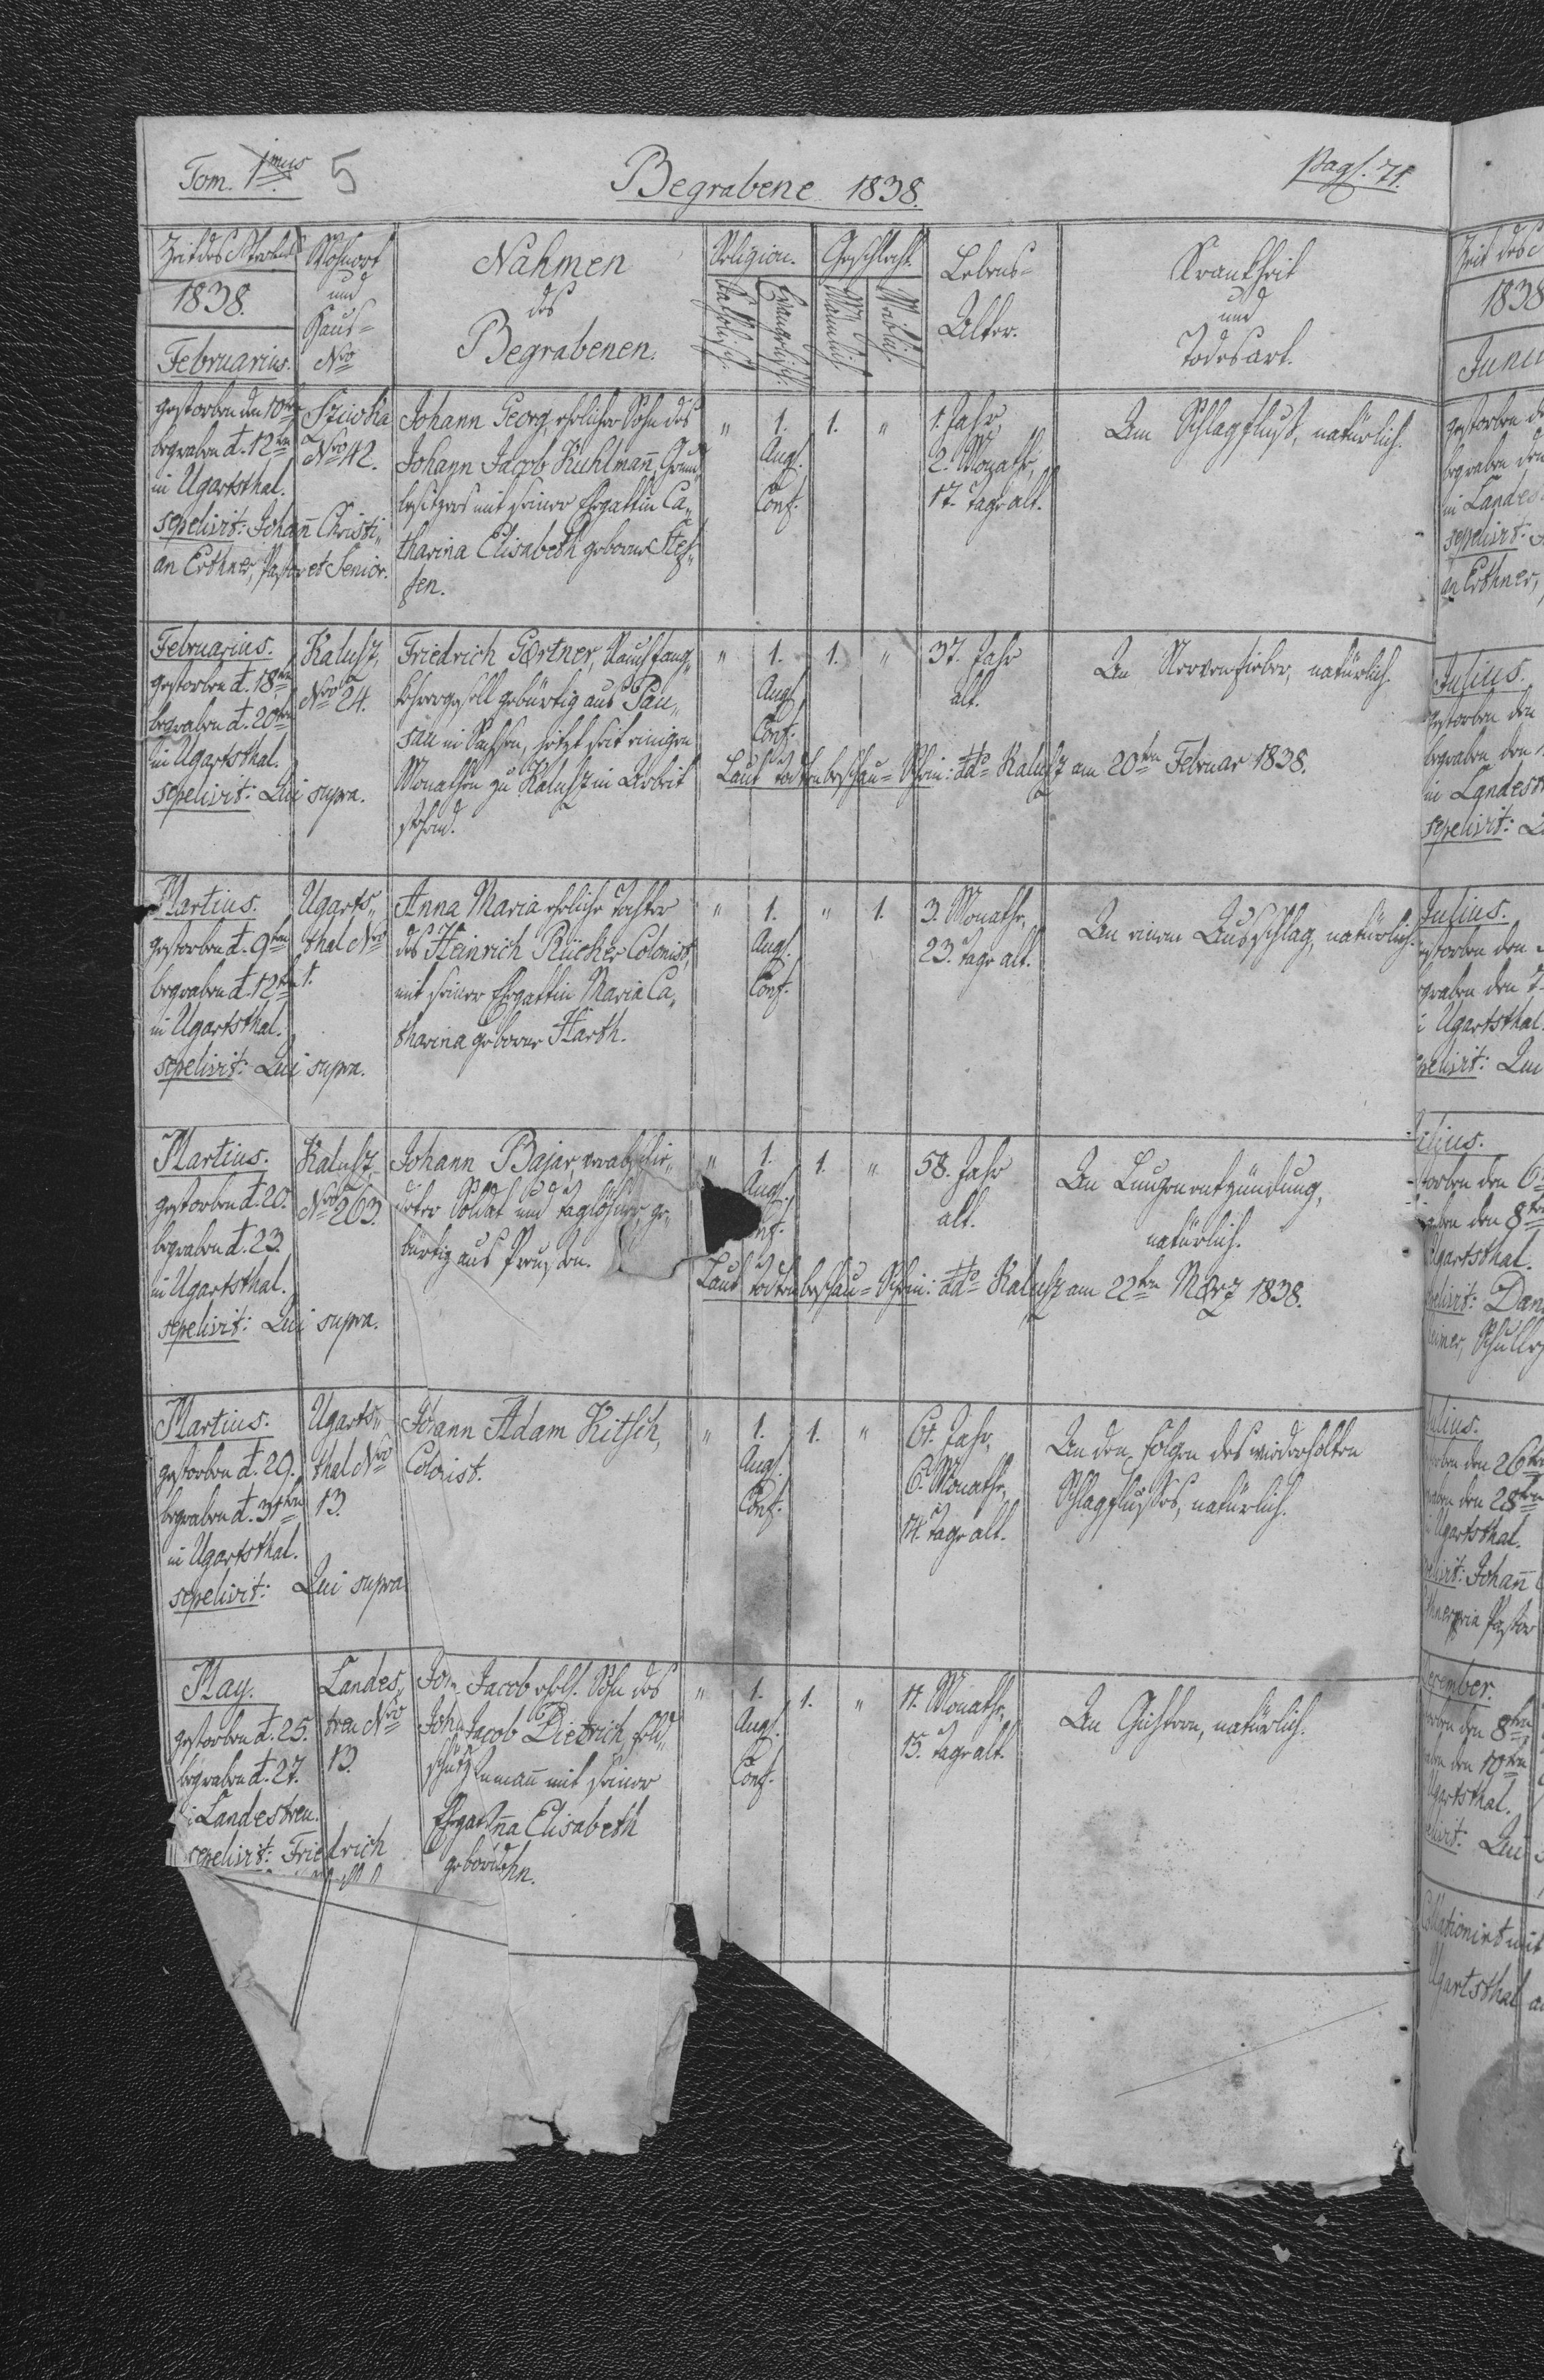 Tom. 1mus 5
Begrabene 1838.
Pag. 71.
Zeit des Sterbens
1838.
Februarius.
Wohnort
und
Haus=
Nro
Nahmen
des
Begrabenen.
Religion.
Katholisch.
Evangelisch.
Geschlecht.
Männlich.
Weiblich.
Lebens=
Alter.
Krankheit
und
Todesart.
gestorben den 10ten
begraben d. 12ten
in Ugartsthal.
sepelivit: Johann Christi„
an Erthner, Pastor et Senior.
Nro 42.
Johann Georg, ehelicher Sohn des
Johann Jacob Kuhlmann, Grund
besitzers mit seiner Ehgattin Ca„
tharina Elisabeth geborne Stef„
fen.
„ 1. 1. „
Augs.
Conf.
1. Jahr,
2. Monathe,
17. Tage alt.
Am Schlagfluß, natürlich.
Februarius.
gestorben d. 18ten
begraben d. 20ten
in Ugartsthal.
sepelivit: Qui supra.
Kalusz,
Nro 24.
Friedrich Gærtner, Rauchfang„
kehrergesell gebürtig aus Pau„
sau in Sachsen, jetzt seit einigen
Monathen zu Kalusz in Arbeit
stehend.
„ 1. 1. „
Augs.
Conf.
37. Jahr
alt.
An Nervenfieber, natürlich.
Laut Todtenbeschau=Schein: ddto Kalusz am 20ten Februar 1838.
Martius.
gestorben d. 9ten
begraben d. 12ten
in Ugartsthal.
sepelivit: Qui supra.
Ugarts„
thal Nro
1.
Anna Maria eheliche Tochter
des Heinrich Rücker Colonist,
mit seiner Ehgattin Maria Ca„
tharina geborne Harth.
„ 1. „ 1.
Augs.
Conf.
3. Monathe,
23. Tage alt.
An einem Ausschlag, natürlich.
Martius.
gestorben d. 20.
begraben d. 23.
in Ugartsthal.
sepelivit: Qui supra.
Kalusz,
Nro 263.
Johann Bajar, verabschie„
deter Soldat und Taglöhner, ge„
bürtig aus Preußen.
„ 1. 1. „
Augs.
58. Jahr
alt.
An Lungenentzündung,
natürlich.
Laut Todtenbeschau=Schein: ddto Kalusz am 22ten Mærz 1838.
Martius.
gestorben d. 29.
begraben d. 31ten
in Ugartsthal.
sepelivit: Qui supra
Ugarts„
thal Nro
13.
Johann Adam Kitsch,
Colonist.
„ 1. 1. „
Augs.
Conf.
61. Jahr,
6. Monathe,
14. Tage alt.
An den Folgen des wiederholten
Schlagflusses, natürlich.
May.
gestorben d. 25.
begraben d. 27.
Landestreu.
sepelivit: Friedrich
Landes„
treu Nro
13.
Jacob ehel. Sohn des
Jacob Dietrich,
mit seiner
Elisabeth
„ 1. 1. „
Augs.
Conf.
11. Monathe,
15. Tage alt.
An Gichtern, natürlich.
1838
gestorben
begraben den
in Landes
sepelivit:
an Erthner,
Julius.
gestorben den
begraben den
in Landest
sepelivit:
Julius.
Ugartsthal.
Qui
8ten
Ugartsthal.
Dan
den 26ten
den 28ten
Ugartsthal.
Johann
Pastor
den 8ten
den 10ten
Ugartsthal.
Qui
Ugartsthal